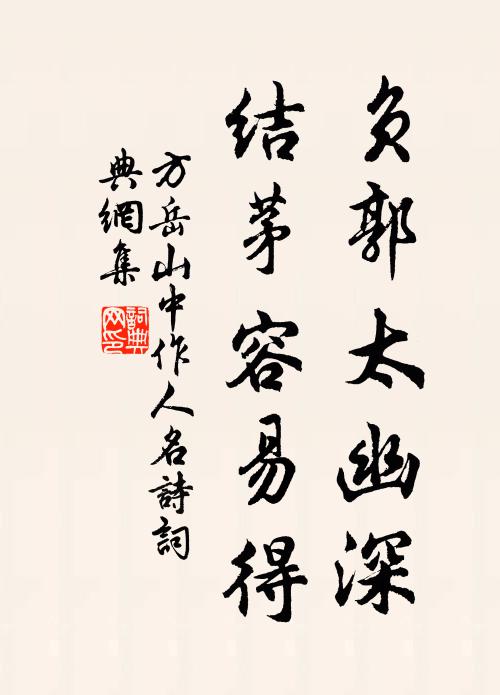 负郭太幽深
结茅容易得
方岳山中作人名詩詞
典網集
詞典
网印